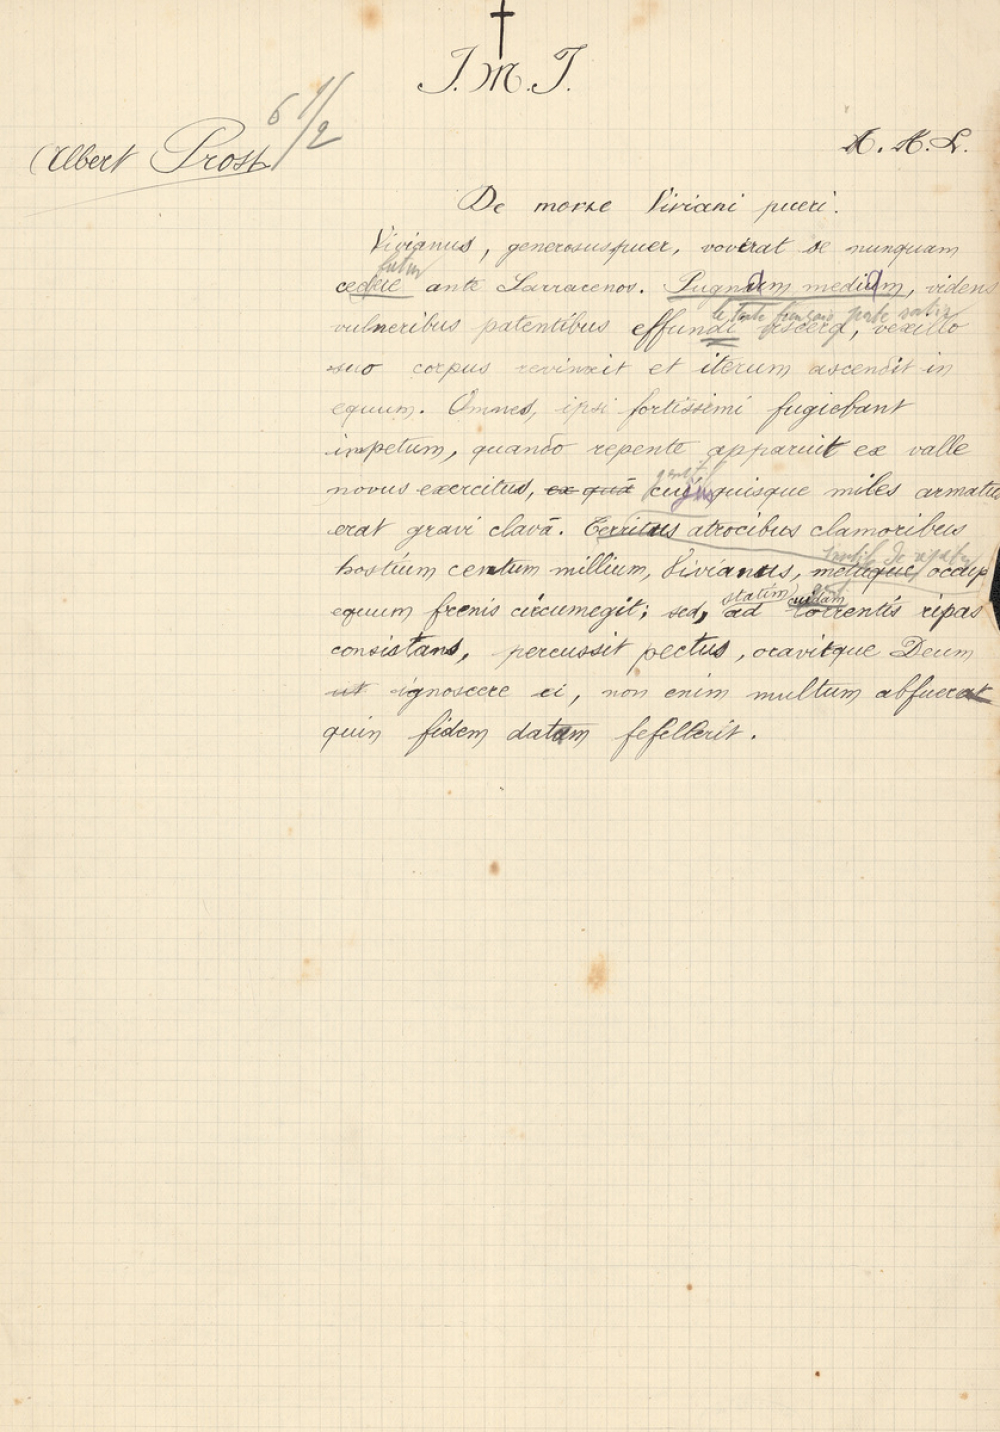 J. M. J.
6 1/2
Albert Prost
A. M. L.
De morte Viviani pueri.
Vivianus, generosus puer, voverat se nunquam
futur
cedere ante Sarracenos. Pugnam mediam, videns
le texte français parle
vulneribus patentibus effundi viscera, vexillo
suo corpus revinxit et iterum ascendit in
equum. Omnes, ipsi fortissimi fugiebant
impetum, quando repente apparuit ex valle
novus exercitus, ex quā cujusquisque miles armatus
erat gravi clavā. Territus atrocibus clamoribus
inutile
hostium centum millium, Vivianus, metuque occup
statim
equum frenis circumegit; sed, ad torrentis ripas
consistans, percussit pectus, oravitque Deum
ut ignoscere ei, non enim multum abfuerat
quin fidem datam fefellerit.